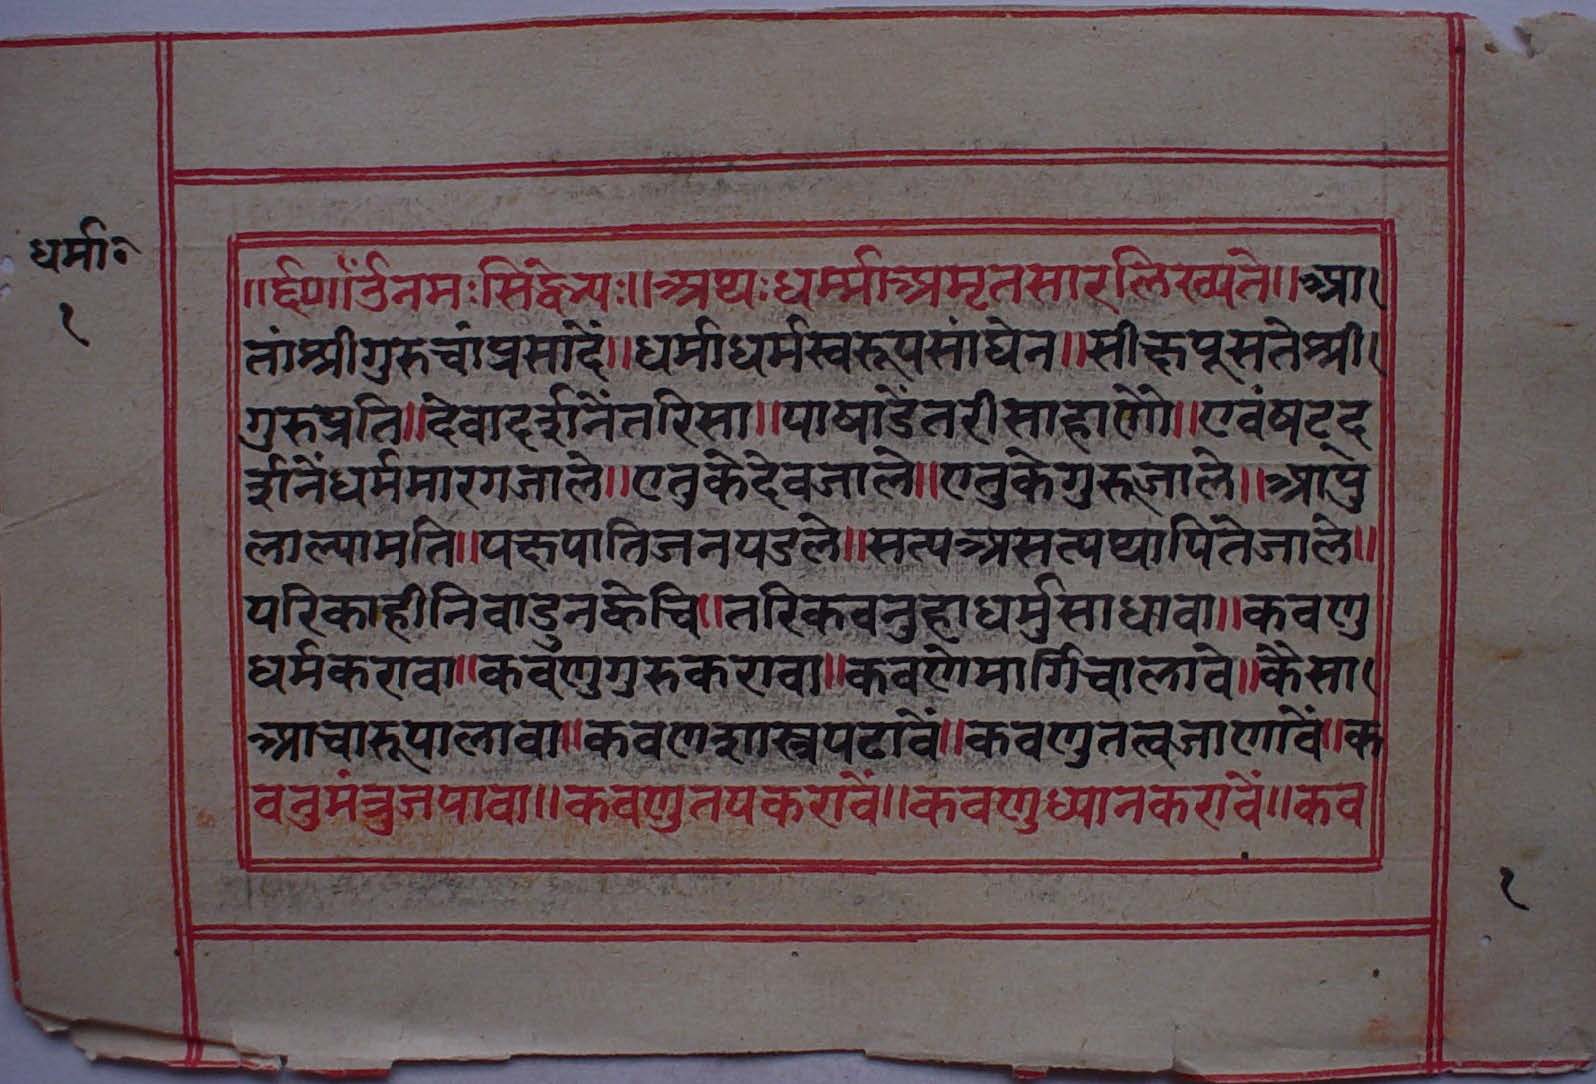 धर्मा॰
१
॥र्द्द॥ॐनमःसिद्धेभ्यः॥अथःधर्म्माअमृतसारलिख्यते॥आ।
तांश्रीगुरुचांप्रसादें॥धर्माधर्मस्वरूपसांघेन॥सीक्षपूसतेश्री।
गुरुप्रति॥देवादर्शनेंतरिसा॥पाषांडेंतरीसाहाणो॥एवंषटद
र्शनेंधर्ममारगजाले॥एतुकेदेवजाले॥एतुकेगुरूजाले॥आपु
लाल्यामति॥पक्षपातिजनपडले॥सत्यअसत्यथापितेजाले॥
परिकाहीनिवाडुनव्हेचि॥तरिकवनुहाधर्मुसाधावा॥कवणु
धर्मकरावा॥कवणुगुरुकरावा॥कवणेमार्गिचालावे॥कैसा।
आचारूपालावा॥कवणशास्त्रपढावें॥कवणुतत्वजाणावें॥क
वनुमंत्रुजपावा॥कवणुतपकरावें॥कवणुध्यानकरावें॥कव
१